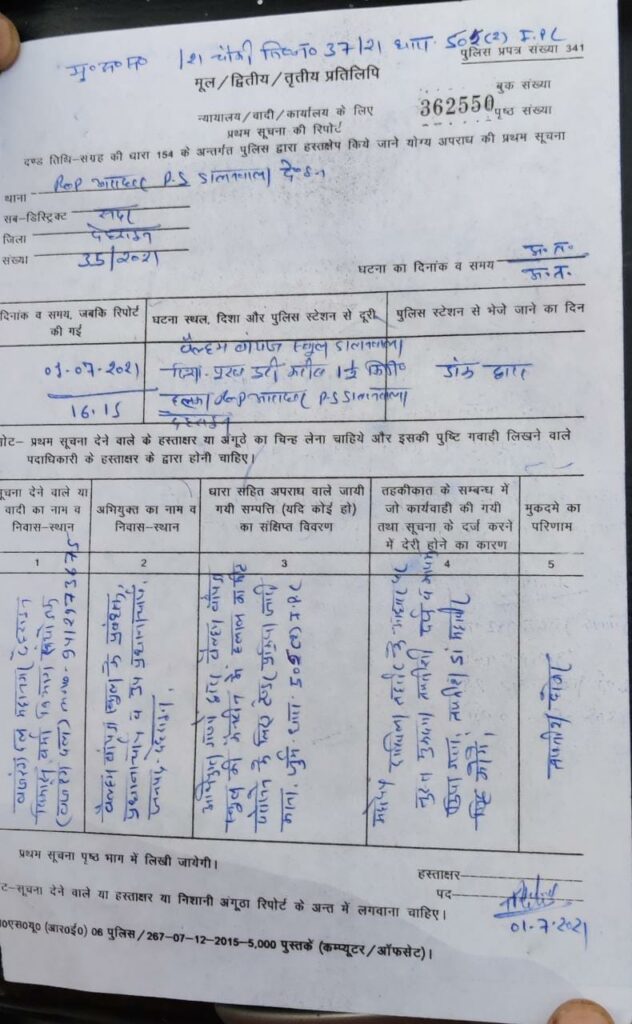 मु०अ०सं० /21 चौकी रिपो० 37/21 धारा- 505(2) I.P.C
पुलिस प्रपत्र संख्या 341
मूल/द्वितीय/तृतीय प्रतिलिपि
बुक संख्या
न्यायालय/वादी/कार्यालय के लिए
362550 पृष्ठ संख्या
प्रथम सूचना की रिपोर्ट
दण्ड विधि-संग्रह की धारा 154 के अन्तर्गत पुलिस द्वारा हस्तक्षेप किये जाने योग्य अपराध की प्रथम सूचना
थाना P.S डालनवाला दे०दून
सब-डिस्ट्रिक्ट सदर
जिला देहरादून
संख्या 35/2021
घटना का दिनांक व समय अ.त.
अ.त.
दिनांक व समय, जबकि रिपोर्ट की गई
घटना स्थल, दिशा और पुलिस स्टेशन से दूरी
पुलिस स्टेशन से भेजे जाने का दिन
01-07-2021
16.15
वैल्हम बॉयज स्कूल डालनवाला
दिशा- पूरब दूरी करीब 1½ किमी०
हल्का P.S डालनवाला
देहरादून
डाक द्वारा
नोट– प्रथम सूचना देने वाले के हस्ताक्षर या अंगूठे का चिन्ह लेना चाहिये और इसकी पुष्टि गवाही लिखने वाले
पदाधिकारी के हस्ताक्षर के द्वारा होनी चाहिए।
सूचना देने वाले या वादी का नाम व निवास-स्थान
अभियुक्त का नाम व निवास-स्थान
धारा सहित अपराध वाले जायी गयी सम्पत्ति (यदि कोई हो) का संक्षिप्त विवरण
तहकीकात के सम्बन्ध में जो कार्यवाही की गयी तथा सूचना के दर्ज करने में देरी होने का कारण
मुकदमे का परिणाम
1 2 3 4 5
बजरंग दल महानगर देहरादून
(बजरंग दल)
वैल्हम बॉयज स्कूल के प्रबंधक,
प्रधानाचार्य व उप प्रधानाचार्य,
जनपद- देहरादून
अभियुक्त गणों द्वारा वैल्हम बॉयज
स्कूल की कैन्टीन में हलाल का मीट
परोसने के लिए टेंडर प्रक्रिया जारी
करना. जुर्म धारा- 505(2) I.P.C
तहरीर के आधार पर
किया गया, तफ्तीश
करेंगे।
तफ्तीश होगा
प्रथम सूचना पृष्ठ भाग में लिखी जायेगी।
हस्ताक्षर
पद
नोट-सूचना देने वाले या हस्ताक्षर या निशानी अंगूठा रिपोर्ट के अन्त में लगवाना चाहिए।
01-7-2021
०एस०यू० (आर०ई०) 06 पुलिस/267-07-12-2015-5,000 पुस्तकें (कम्प्यूटर/ऑफसेट)।